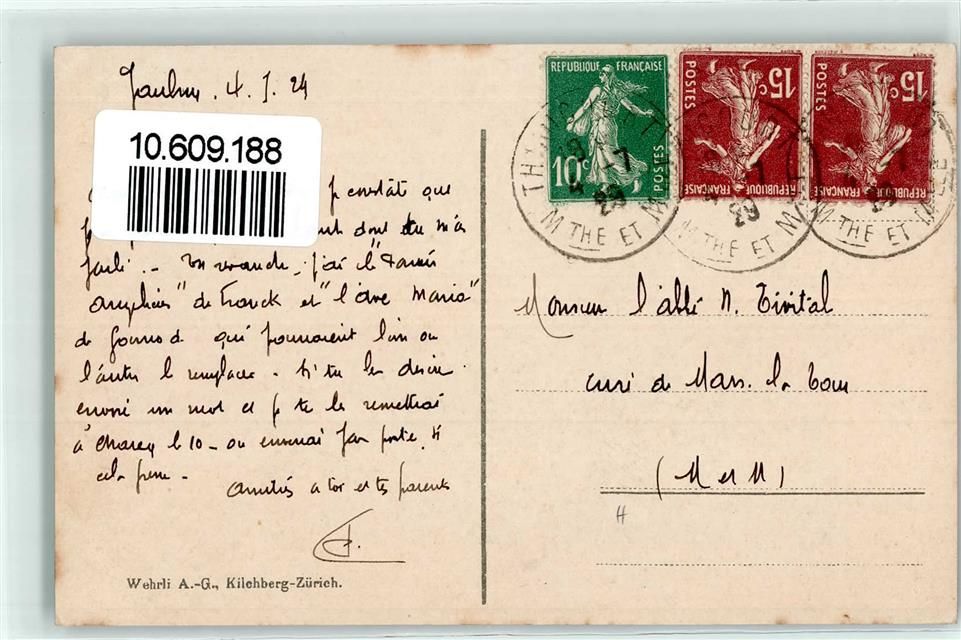 Jaulny. 4. 7. 29
10.609.188
je constate que
dont tu m'as
parlé. - En revanche, j'ai le "Panis
angelicus" de Franck et "l'ave Maria"
de Gounod qui pourraient l'un ou
l'autre le remplacer. Si tu les désires
envoie un mot et je te les remettrai
à Charey le 10 - ou enverrai par poste, si
cela presse -
Amitiés à toi et tes parents
Wehrli A.-G., Kilchberg-Zürich.
REPUBLIQUE FRANÇAISE
10c
POSTES
15c
POSTES
REPUBLIQUE FRANÇAISE
15c
POSTES
REPUBLIQUE FRANÇAISE
4 -7 29
M THE ET M
Monsieur l'abbé N. Tivital
curé de Mars-la-Tour
(M et M)
H